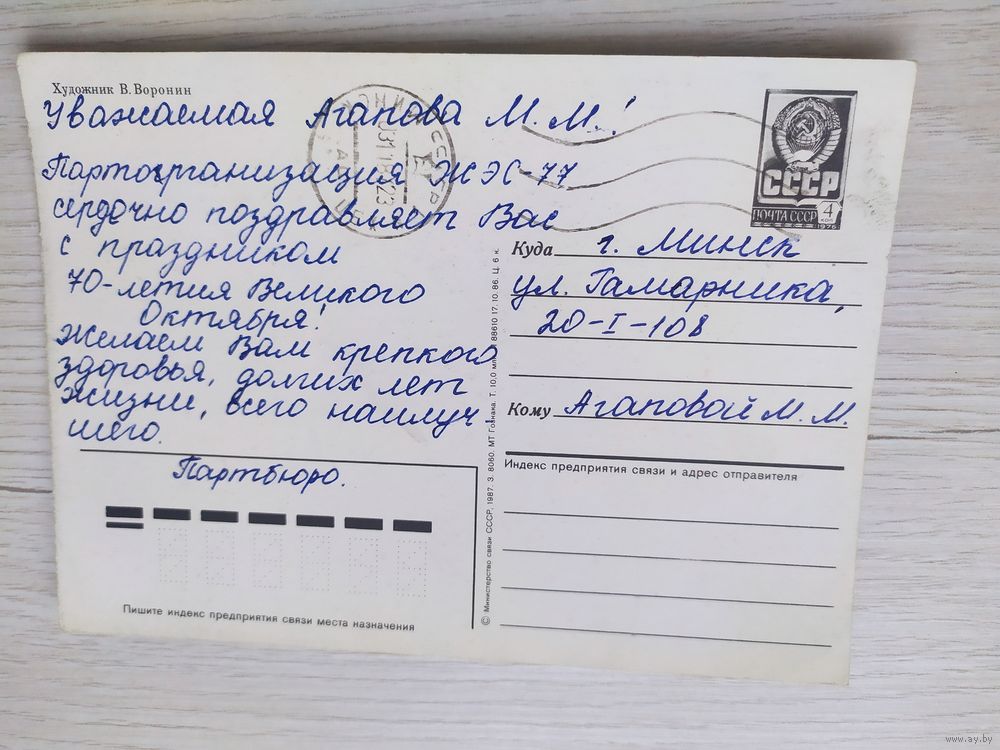 Художник В. Воронин
Уважаемая Агапова М. М.!
Парторганизация ЖЭС-77
сердечно поздравляет Вас
с праздником
70-летия Великого
Октября!
Желаем Вам крепкого
здоровья, долгих лет
жизни, всего наилуч
шего.
Партбюро.
Пишите индекс предприятия связи места назначения
СССР
ПОЧТА СССР
4
КОП
1976
Куда г. Минск
ул. Гамарника,
20-I-108
Кому Агаповой М. М.
Индекс предприятия связи и адрес отправителя
© Министерство связи СССР, 1987. З. 8060. МТ Гознака. Т. 10,0 млн. 88610 17.10.86. Ц. 6 к.
www.ay.by